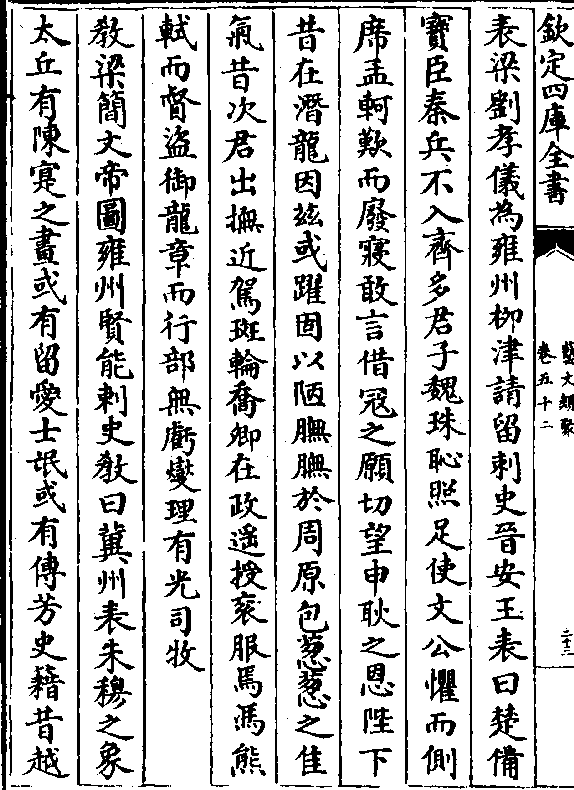 欽定四庫全書
藝文類聚
卷五十二
二十三
表梁劉孝儀為雍州柳津請留刺史晉安王表曰楚備
寶臣秦兵不入齊多君子魏珠恥照足使文公懼而側
席孟軻歎而廢寢敢言借寇之願切望申耿之恩陛下
昔在潛龍因茲或躍固以陋膴膴於周原包葱葱之佳
氣昔次君出撫近駕斑輪喬卿在政遥授衮服焉馮熊
軾而督盜御龍章而行部無虧燮理有光司牧
教梁簡文帝圖雍州賢能刺史教曰冀州表朱穆之象
太丘有陳寔之畫或有留愛士氓或有傳芳史籍昔越